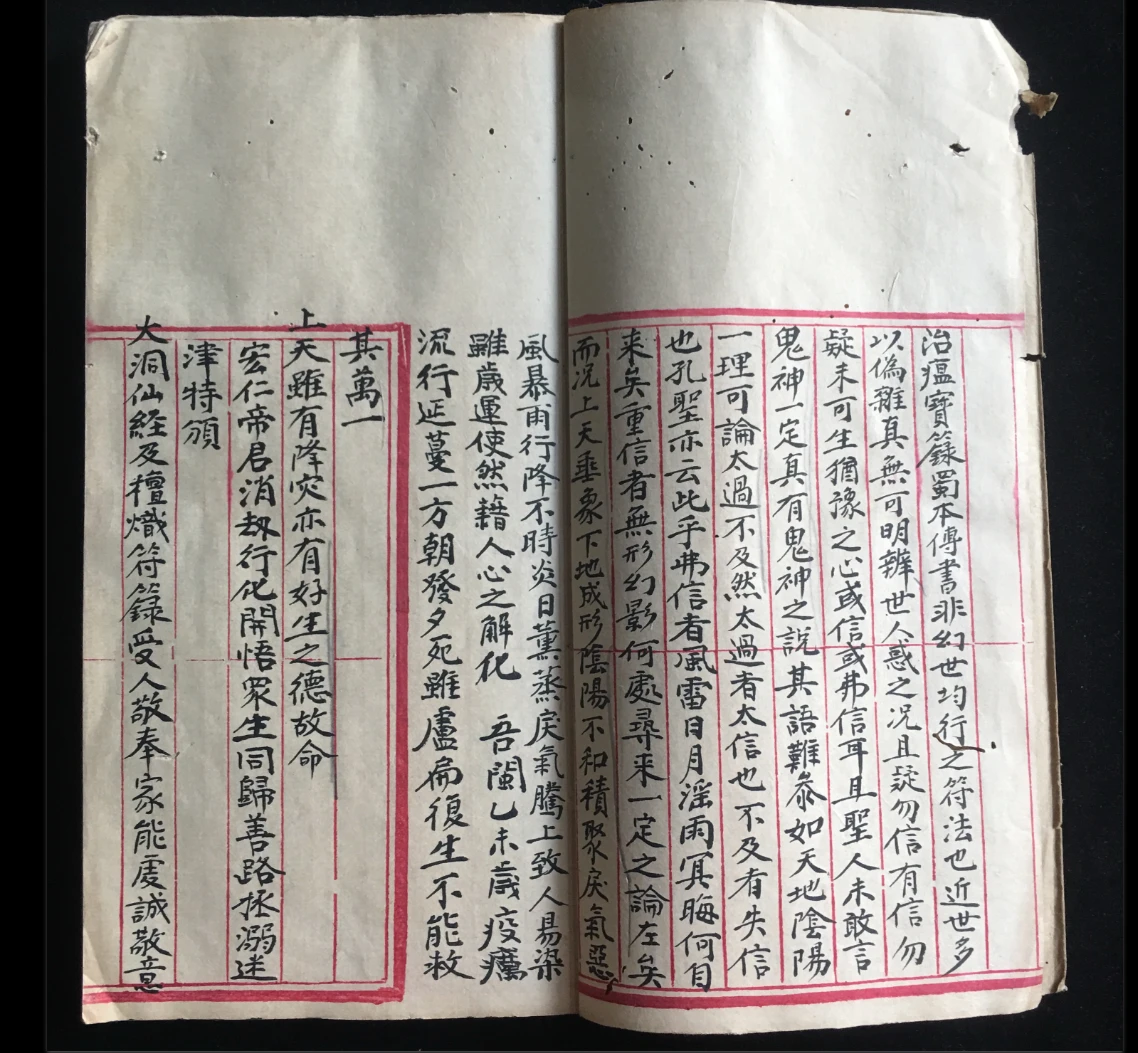 治瘟寶籙蜀本傳書非幻世均行之符法也近世多
以偽雜真無可明辨世人惑之况且疑勿信有信勿
疑未可生猶豫之心或信或弗信耳且聖人未敢言
鬼神一定真有鬼神之說其語難叅如天地陰陽
一理可論太過不及然太過者太信也不及有失信
也孔聖亦云此乎弗信者風雷日月滛雨冥晦何自
来矣重信者無形幻影何處尋来一定之論左矣
而况上天垂象下地成形陰陽不和積聚戾氣惡
風暴雨行降不時炎日薰蒸戾氣騰上致人易染
雖歲運使然藉人心之解化 吾閩乙未歲疫癘
流行延蔓一方朝發夕死雖盧扁復生不能救
其萬一
上天雖有降灾亦有好生之德故命
宏仁帝君消刼行化開悟眾生同歸善路拯溺迷
津特頒
大洞仙経及檀熾符籙受人敬奉家能虔誠敬意